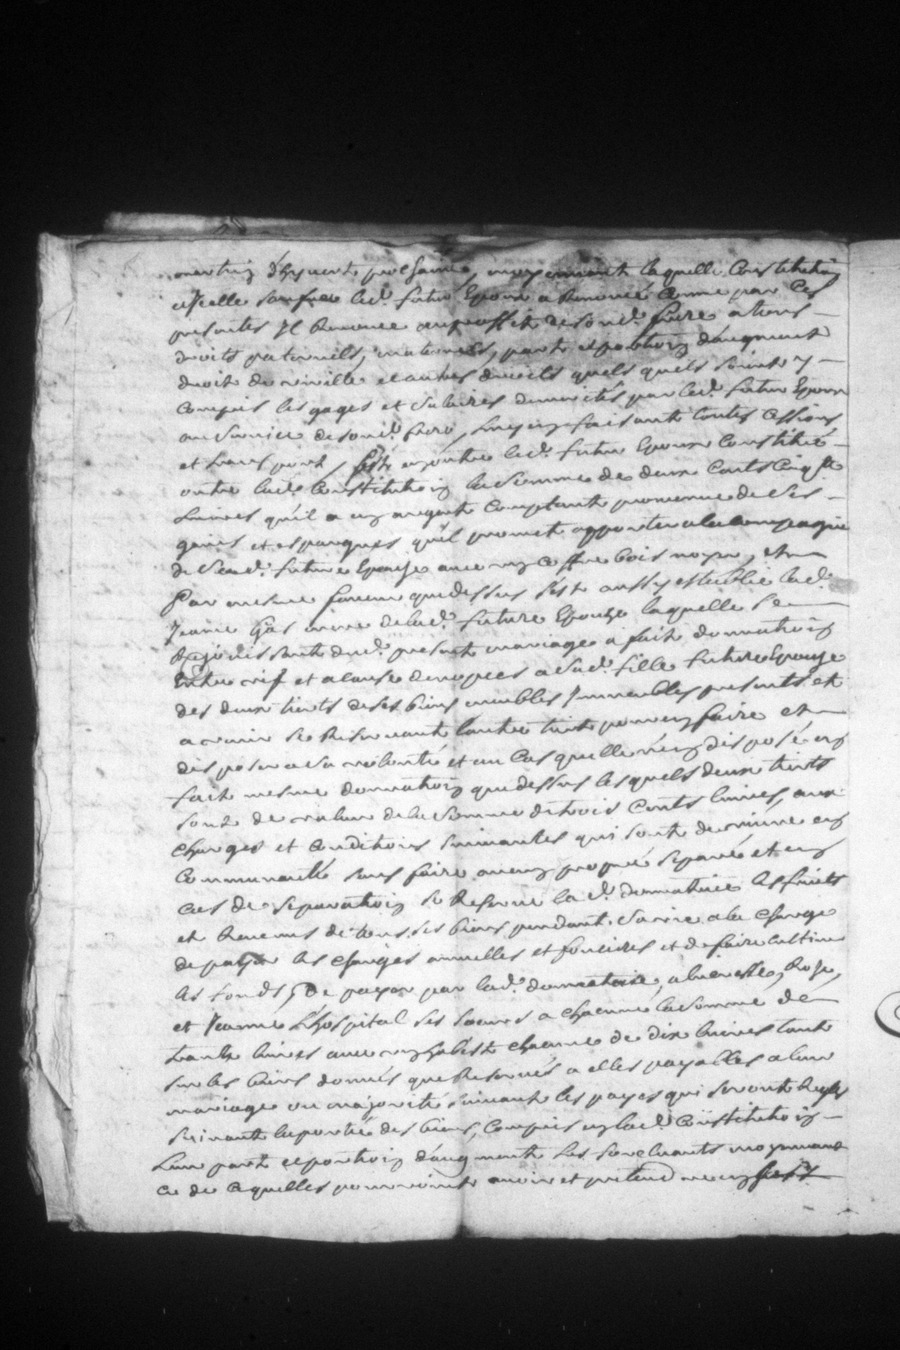 moyennant laquelle Constitution
icelle led. futur Epoux a Renoncé Comme par Ces
presentes Il Renonce au proffit de sond. frere a tous
droits paternels, maternels, part et portion d'augment
droit de et autres droits quels quels soint y
Compris les gages et Salaires par led. futur Epoux
au Service de sond. frere, luy en faisant toutes Cessions
et transport, s'est en outre led. futur Epoux Constitué
outre lad. Constitution la Somme de deux Cents Cinq.te
Livres qu'il a en argent Comptant provenue de Ses
gains et espargnes qu'il promet apporter a la Compagnie
de Sad. future Epouse avec un Coffre bois noyer, et
Par mesme faveur que dessus s'est aussy establie lad.
Jeanne Gas mere de lad. future Epouze laquelle se
Rejouissant dud. present mariage a fait donnation
Entre vif et a Cause de nopces a Sad. fille future Epouze
des deux tiers de ses biens meubles Immeubles presents et
a venir se Reservant l'autre tiers pour en faire et
disposer a Sa volonté et au Cas quelle n'en dispose en
fait mesme donnation que dessus lesquels deux tiers
sont de valeur de la Somme de trois Cents livres, aux
Charges et Conditions Suivantes qui sont de vivre en
Communauté sans faire aucun propre separé et en
Cas de Separation se Reserve la d. donnatrice les fruits
et Revenus de tous ses biens pendant sa vie a la Charge
de payer les Charges annuelles et foncieres et de faire Cultiver
les fonds, De payer par lad. donnataire, a Roze,
et Jeanne Lhospital ses soeurs a Chacune la Somme de
trante livres avec un habist Chacune de dix livres tant
sur les biens donnés que Reservés a elles payables a leur
mariage ou majorité Suivant les payes qui seront Reglés
Suivant la portée des biens, Compris en lad. Constitution
Leur part et portion d'augment Les moyennant
Ce de laquelles pourroint avoir et s'est